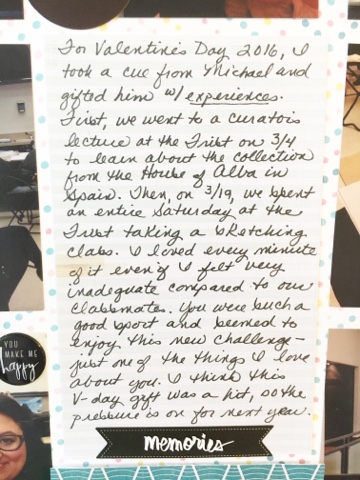 For Valentine's Day 2016, I
took a cue from Michael and
gifted him w/ experiences.
First, we went to a curator's
lecture at the Frist on 3/4
to learn about the collection
from the House of Alba in
Spain. Then, on 3/19, we spent
an entire Saturday at the
Frist taking a sketching
class. I loved every minute
of it even if I felt very
inadequate compared to our
classmates. You were such a
good sport and seemed to
enjoy this new challenge—
just one of the things I love
about you. I think this
V-day gift was a hit, so the
pressure is on for next year.
YOU
MAKE ME
happy
memories